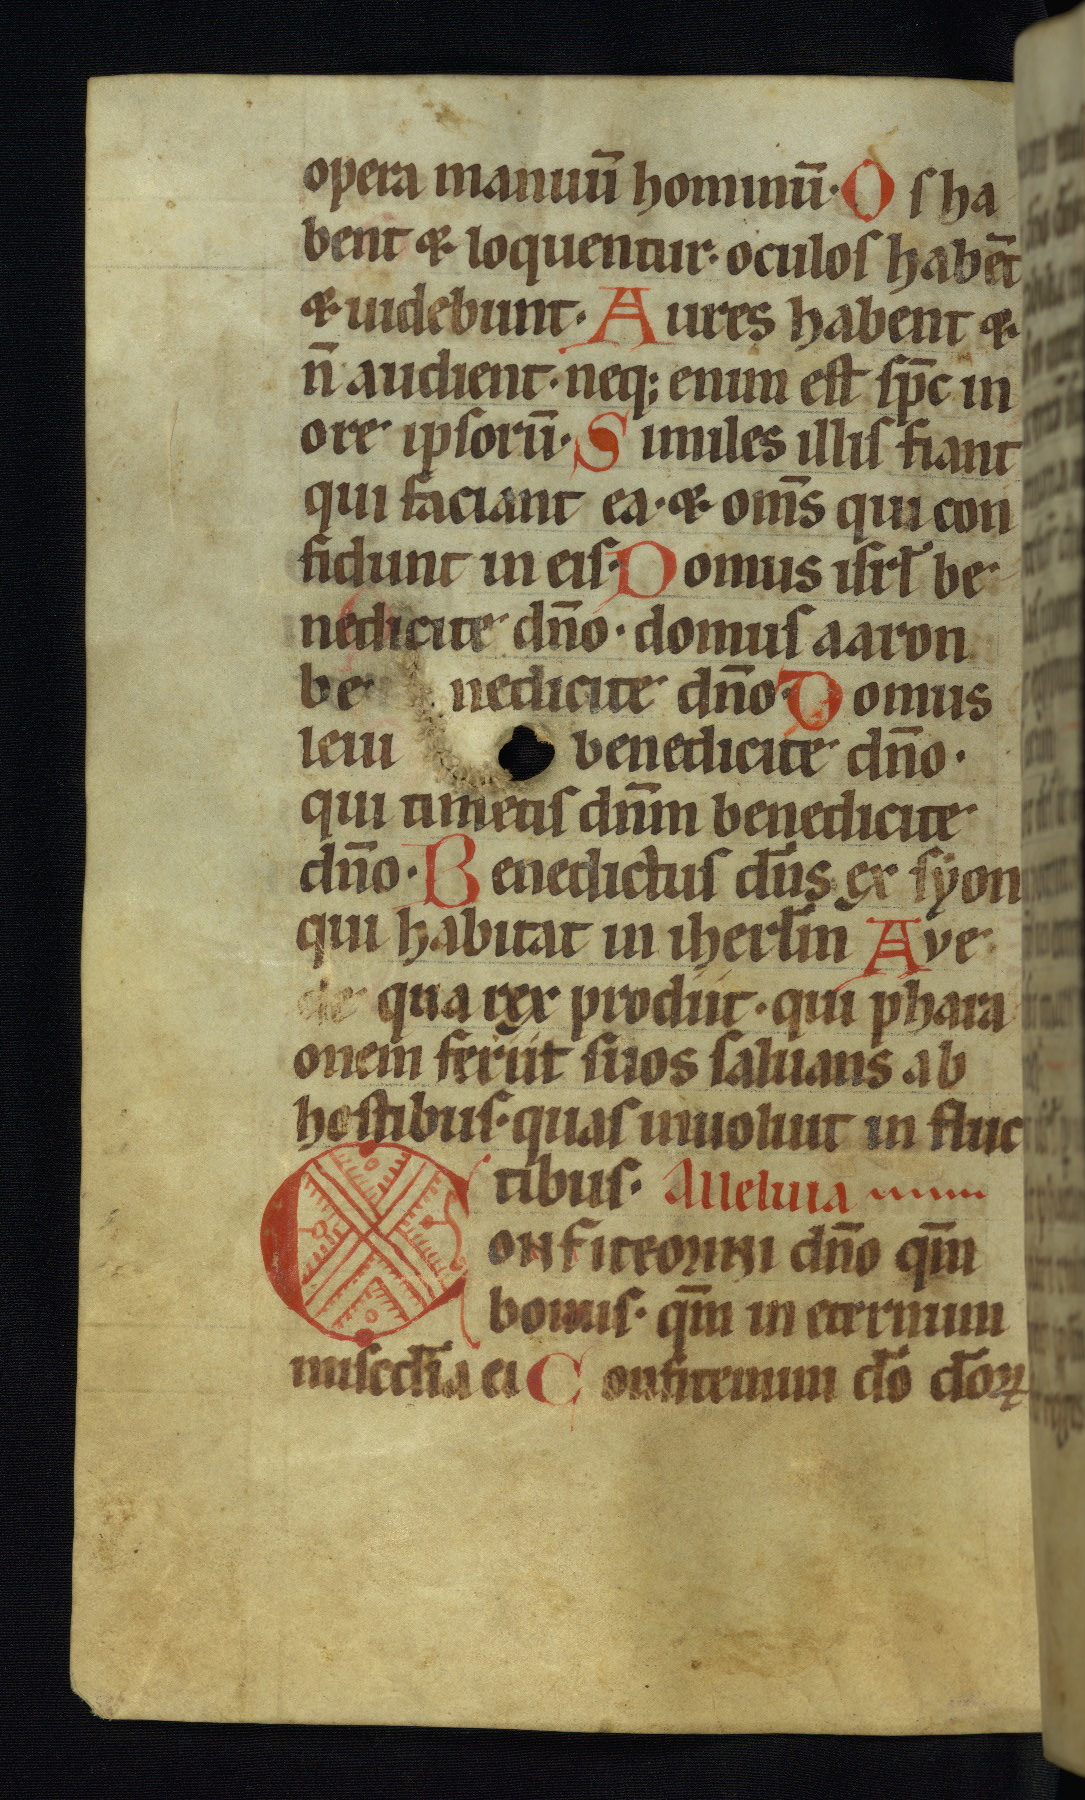 opera manuū hominū· Os ha
bent & loquentur· oculos habēt
& uidebunt· Aures habent &
n̄ audient· neq; enim est sp̄c in
ore ipsorū· Similes illis fiant
qui faciant ea· & om̄s qui con
fidunt in eis· Domus isrł be
nedicite dn̄o· domus aaron
be nedicite dn̄o· Domus
leui benedicite dn̄o·
qui timetis dn̄m benedicite
dn̄o· Benedictus dn̄s ex syon
qui habitat in iherłm Ave
de qua rex prodiit· qui phara
onem feriit suos saluans ab
hostibus· quas inuoluit in fluc
tibus· Alleluia
Confitemini dn̄o qm̄
bonus· qm̄ in eternum
misc̄dia ei Confitemini do̅ do̅ꝝ